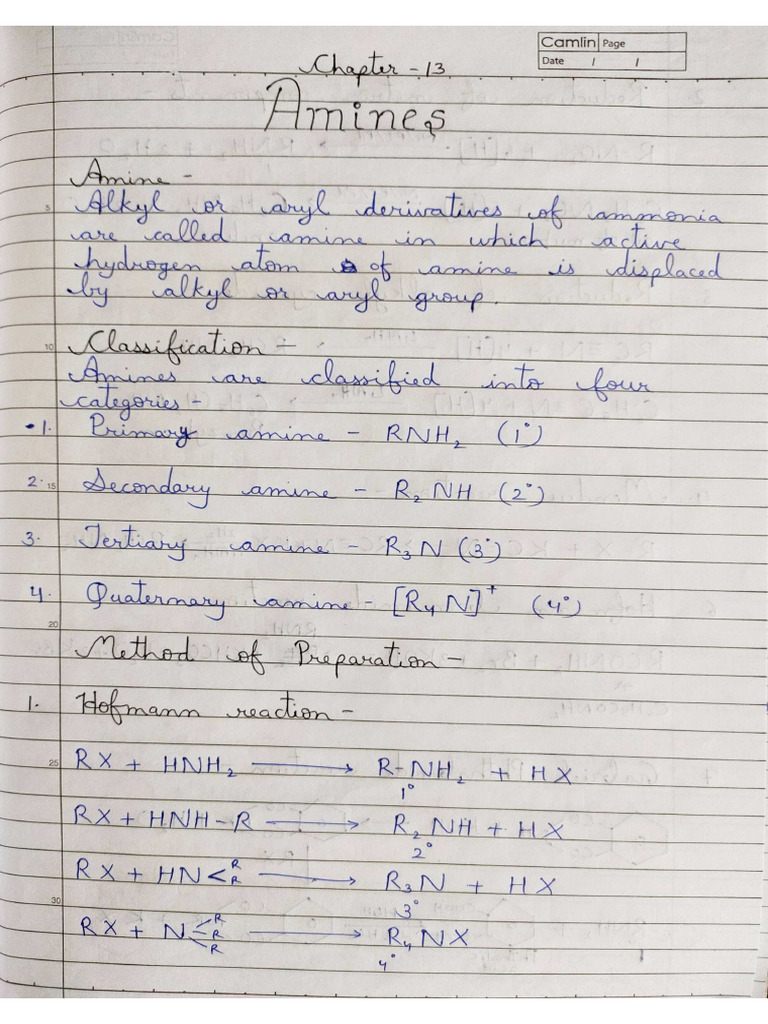 Camlin Page
Date / /
Chapter - 13
Amines
Amine -
Alkyl or aryl derivatives of ammonia
are called amine in which active
hydrogen atom of amine is displaced
by alkyl or aryl group.
Classification :-
Amines are classified into four
categories -
1. Primary amine - RNH₂ (1°)
2. Secondary amine - R₂NH (2°)
3. Tertiary amine - R₃N (3°)
4. Quaternary amine - [R₄N]⁺ (4°)
Method of Preparation -
1. Hofmann reaction -
RX + HNH₂ → R-NH₂ + HX
1°
RX + HNH-R → R₂NH + HX
2°
RX + HN<R R → R₃N + HX
3°
RX + N R R R → R₄NX
4°
5
10
15
20
25
30